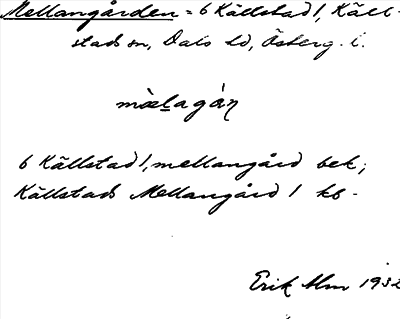 Mellangården = 6 Källstad 1, Käll-
stads sn, Dals hd, Österg. l.
mælagán
6 Källstad 1, mellangård bek;
Källstads Mellangård 1 kb -
Erik Alm 1932